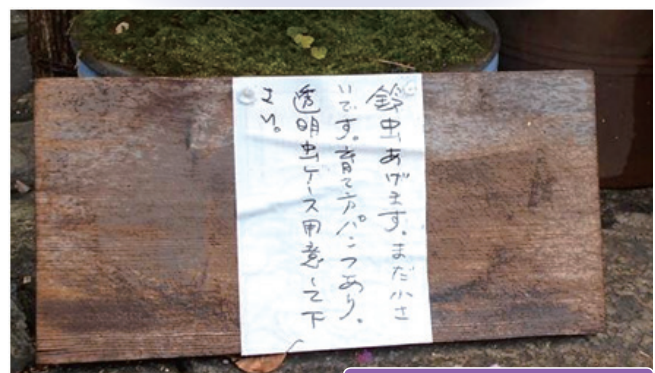 鈴虫あげます。まだ小さ
いです。育て方パンフあり。
透明虫ケース用意して下
さい。